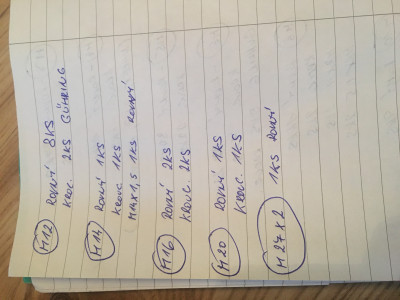 M12 ROVNÝ 8KS
KROUC. 2KS GÜHRING
M14 ROVNÝ 1KS
KROUC 1KS
M14X1,5 1KS ROVNÝ
M16 ROVNÝ 2KS
KROUC 2KS
M20 ROVNÝ 1KS
KROUC. 1KS
M27X2 1KS ROVNÝ